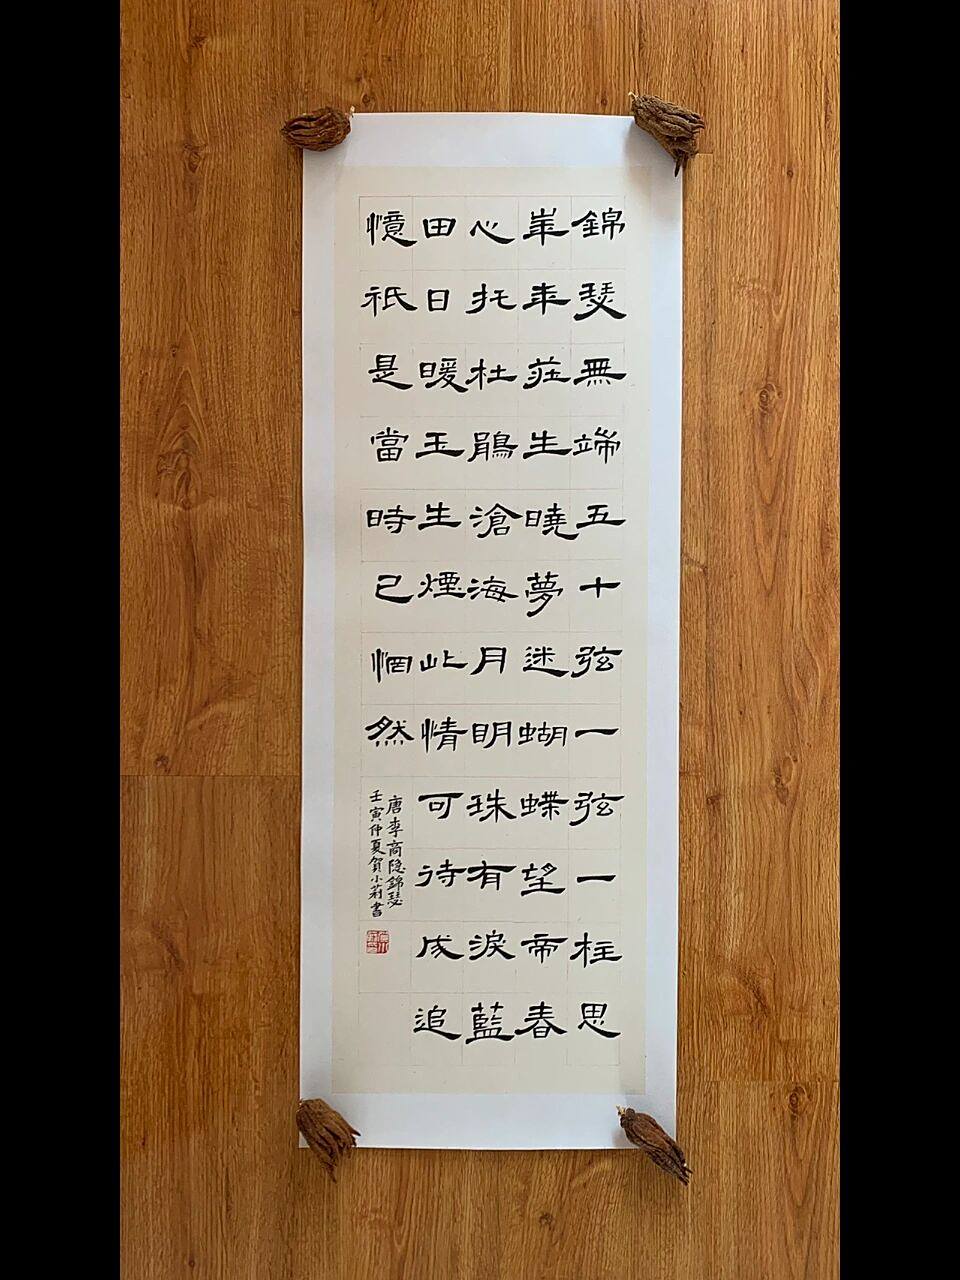 錦瑟無端五十弦一弦一柱思
華年莊生曉夢迷蝴蝶望帝春
心托杜鵑滄海月明珠有淚藍
田日暖玉生煙此情可待成追
憶祇是當時已惘然
唐李商隐錦瑟
壬寅仲夏賀小莉書